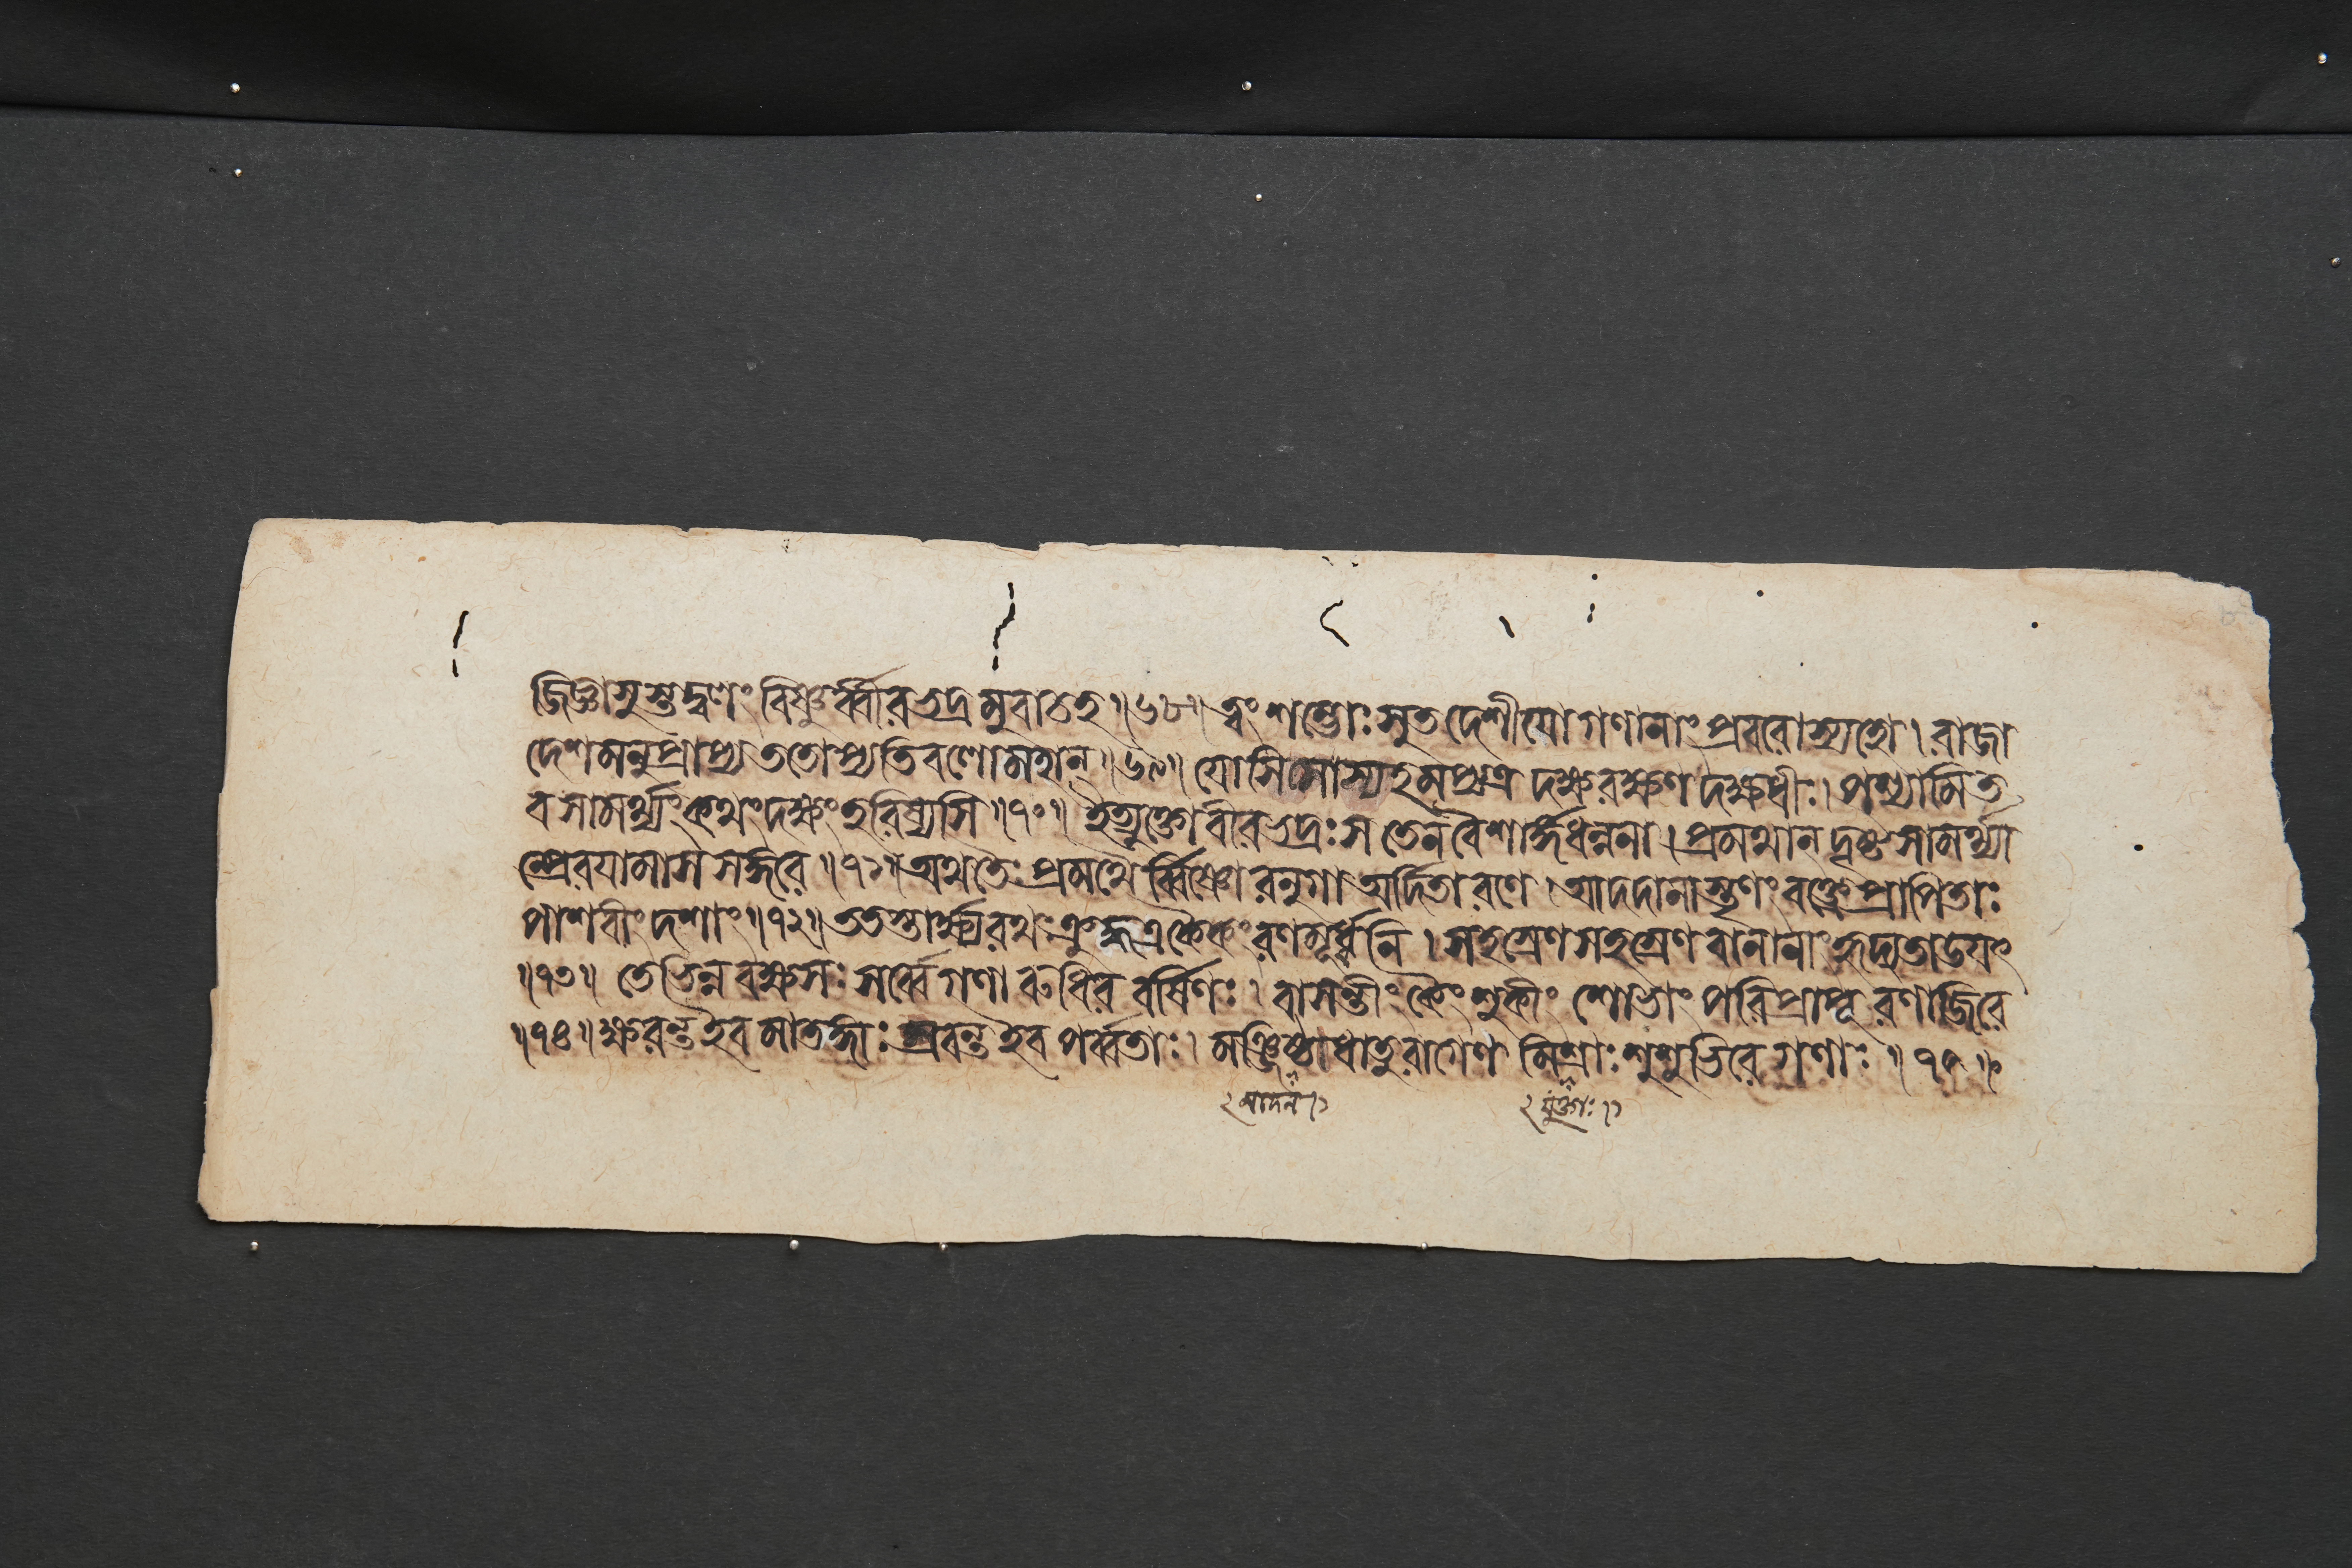 জিজ্ঞাসুস্তদ্বলং বিষ্ণুর্ব্বীরভদ্রমুবাচহ॥৬৮॥ ত্বং শম্ভোঃ সুতদেশীয়ো গণানাং প্রবরোস্যহো। রাজা
দেশমনুপ্রাপ্য ততোপ্যতিবলোমহান্॥৬৯॥ যোসিসোস্যহমপ্যত্র দক্ষরক্ষণ দক্ষধীঃ। পশ্যামিত
বসামর্থ্যং কথং দক্ষং হরিষ্যসি॥৭০॥ ইত্যুক্তো বীরভদ্রঃ স তেন বৈ শার্ঙ্গধন্বনা। প্রমথান দৃষ্ট সামর্থ্যা
ন্প্রেরযামাস সঙ্গরে॥৭১॥ অথ তৈঃ প্রমথৈর্ব্বিষ্ণোরনুগা অর্দিতা রণে। আদদানাস্তৃণং বক্ত্রে প্রাপিতাঃ
পাশবীং দশাং॥৭২॥ ততস্তার্ক্ষ্যরথঃ ক্রুদ্ধ একৈকং রণমূর্দ্ধনি। সহস্রেণ সহস্রেণ বানানাং হৃদ্যতাডযৎ
॥৭৩॥ তে ভিন্নবক্ষসঃ সর্ব্বে গণা রুধির বর্ষিণঃ। বাসন্তীং কৈংশুকীং শোভাং পরিপ্রাপূ রণাজিরে
॥৭৪॥ ক্ষরন্ত ইব মাতঙ্গাঃ স্রবন্ত ইব পর্ব্বতাঃ। মঞ্জিষ্ঠাধাতুরাগেণ মিশ্রাঃ শুশুভিরে গণাঃ॥৭৫॥